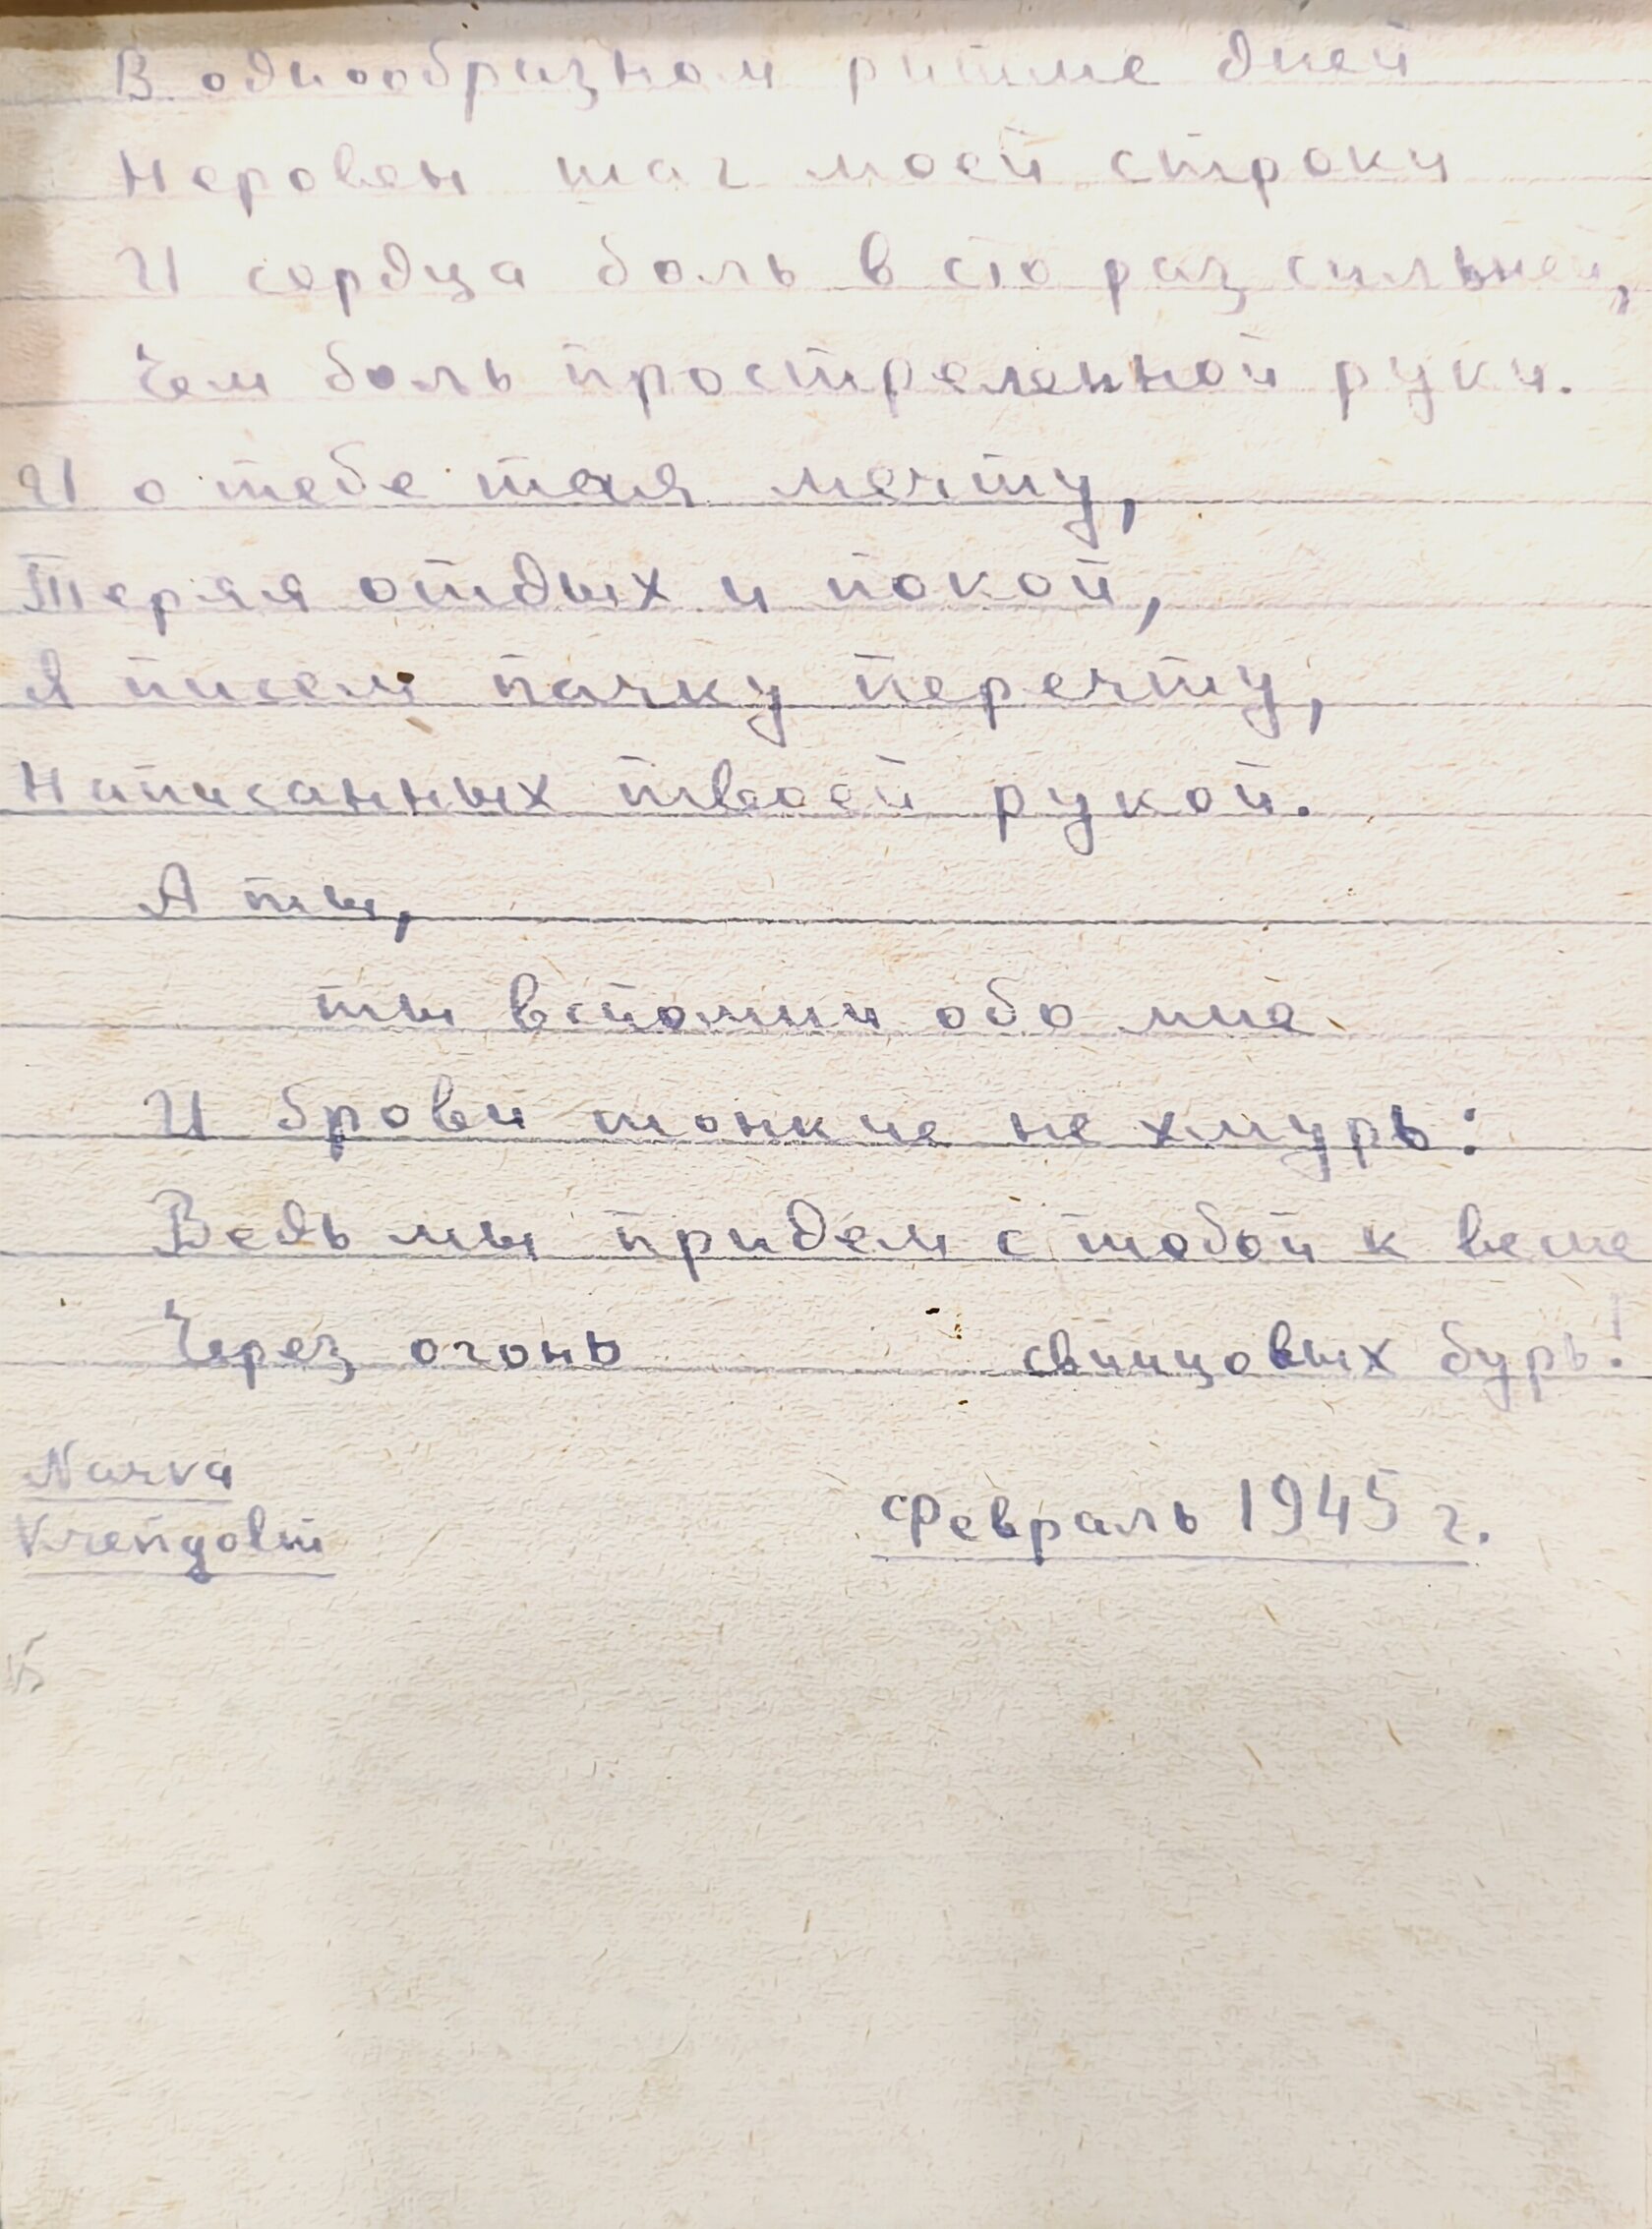 В однообразном ритме дней
Неровен шаг моей строки
И сердца боль в сто раз сильней,
Чем боль простреленной руки.
И о тебе тая мечту,
Теряя отдых и покой,
Я писем пачку перечту,
Написанных твоей рукой.
А ты,
ты вспомни обо мне
И брови тонкие не хмурь:
Ведь мы придем с тобой к весне
Через огонь свинцовых бурь!
Narva
Krengolm
Февраль 1945 г.